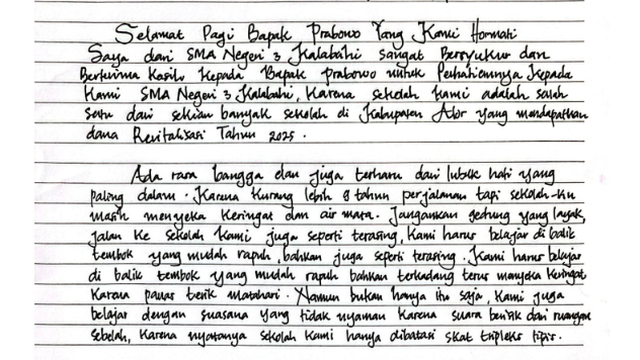 Selamat Pagi Bapak Prabowo Yang Kami Hormati
Saya dari SMA Negeri 3 Kalabahi sangat Bersyukur dan
Berterima Kasih Kepada Bapak prabowo untuk Perhatiannya Kepada
Kami SMA Negeri 3 Kalabahi, Karena sekolah kami adalah salah
satu dari sekian banyak sekolah di Kabupaten Alor yang mendapatkan
dana Revitalisasi Tahun 2025.
Ada rasa bangga dan juga terharu dari lubuk hati yang
paling dalam. Karena Kurang lebih 8 tahun perjalanan tapi sekolah-ku
masih menyeka Keringat dan air mata. Jangankan gedung yang layak,
jalan Ke sekolah Kami juga seperti terasing, Kami harus belajar di balik
tembok yang mudah rapuh, bahkan juga seperti terasing. Kami harus belajar
di balik tembok yang mudah rapuh bahkan terkadang terus menyeka Keringat
Karena panas terik matahari. Namun bukan hanya itu saja, Kami juga
belajar dengan suasana yang tidak nyaman Karena suara berisik dari ruangan
sebelah, Karena nyatanya sekolah Kami hanya dibatasi skat tripleks tipis.